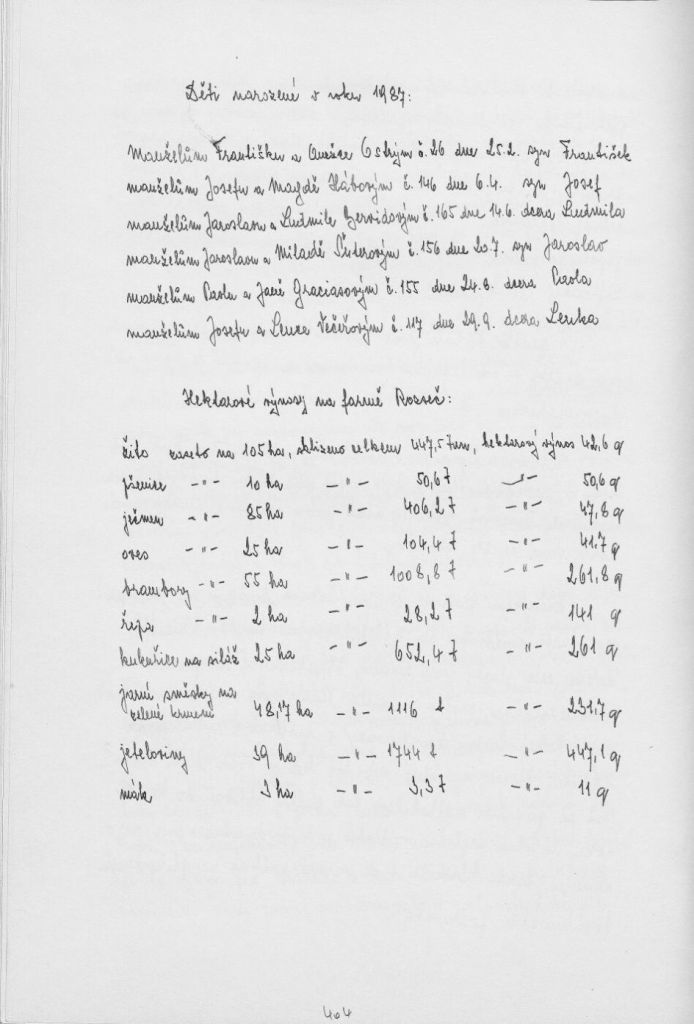 Děti narozené v roku 1987:
Manželům Františku a Anežce Ostrým č. 26 dne 25.2. syn František
manželům Josefu a Magdě Hábovým č. 146 dne 6.4. syn Josef
manželům Jaroslavu a Ludmile Gervidovým č. 165 dne 14.6. dcera Ludmila
manželům Jaroslavu a Miladě Šuterovým č. 156 dne 20.7. syn Jaroslav
manželům Paolu a Janě Graciasovým č. 155 dne 24.8. dcera Paola
manželům Josefu a Lence Večeřovým č. 117 dne 29.9. dcera Lenka
Hektarové výnosy na farmě Rozseč:
žito zaseto na 105 ha, sklizeno celkem 447,5 tun, hektarový výnos 42,6 q
pšenice -"- 10 ha -"- 50,6 t -"- 50,6 q
ječmen -"- 85 ha -"- 406,2 t -"- 47,8 q
oves -"- 25 ha -"- 104,4 t -"- 41.7 q
brambory -"- 55 ha -"- 1008,8 t -"- 261,8 q
řepa -"- 2 ha -"- 28,2 t -"- 141 q
kukuřice na siláž 25 ha -"- 652,4 t -"- 261 q
jarní směsky na
zelené krmení 48,17 ha -"- 1116 t -"- 231,7 q
jeteloviny 39 ha -"- 1744 t -"- 447,1 q
mák 3 ha -"- 3,3 t -"- 11 q
404